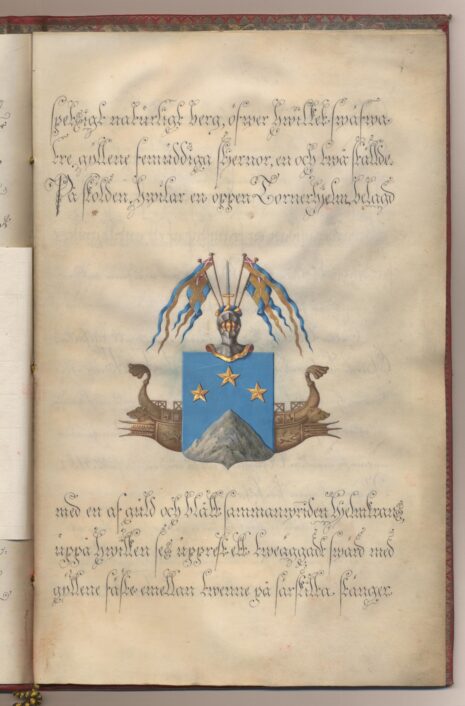 spetsigt naturligt berg, öfwer hwilket swäfwa
tre, gyllene femuddiga stjernor, en och twå ställde.
På skölden, hwilar en öppen Tornerhjelm, belagd
med en af guld och blått sammanwriden hjelmkrants,
uppå hwilken ses upprest ett tweäggadt swärd med
gyllene fäste emellan twenne på särskilta stänger